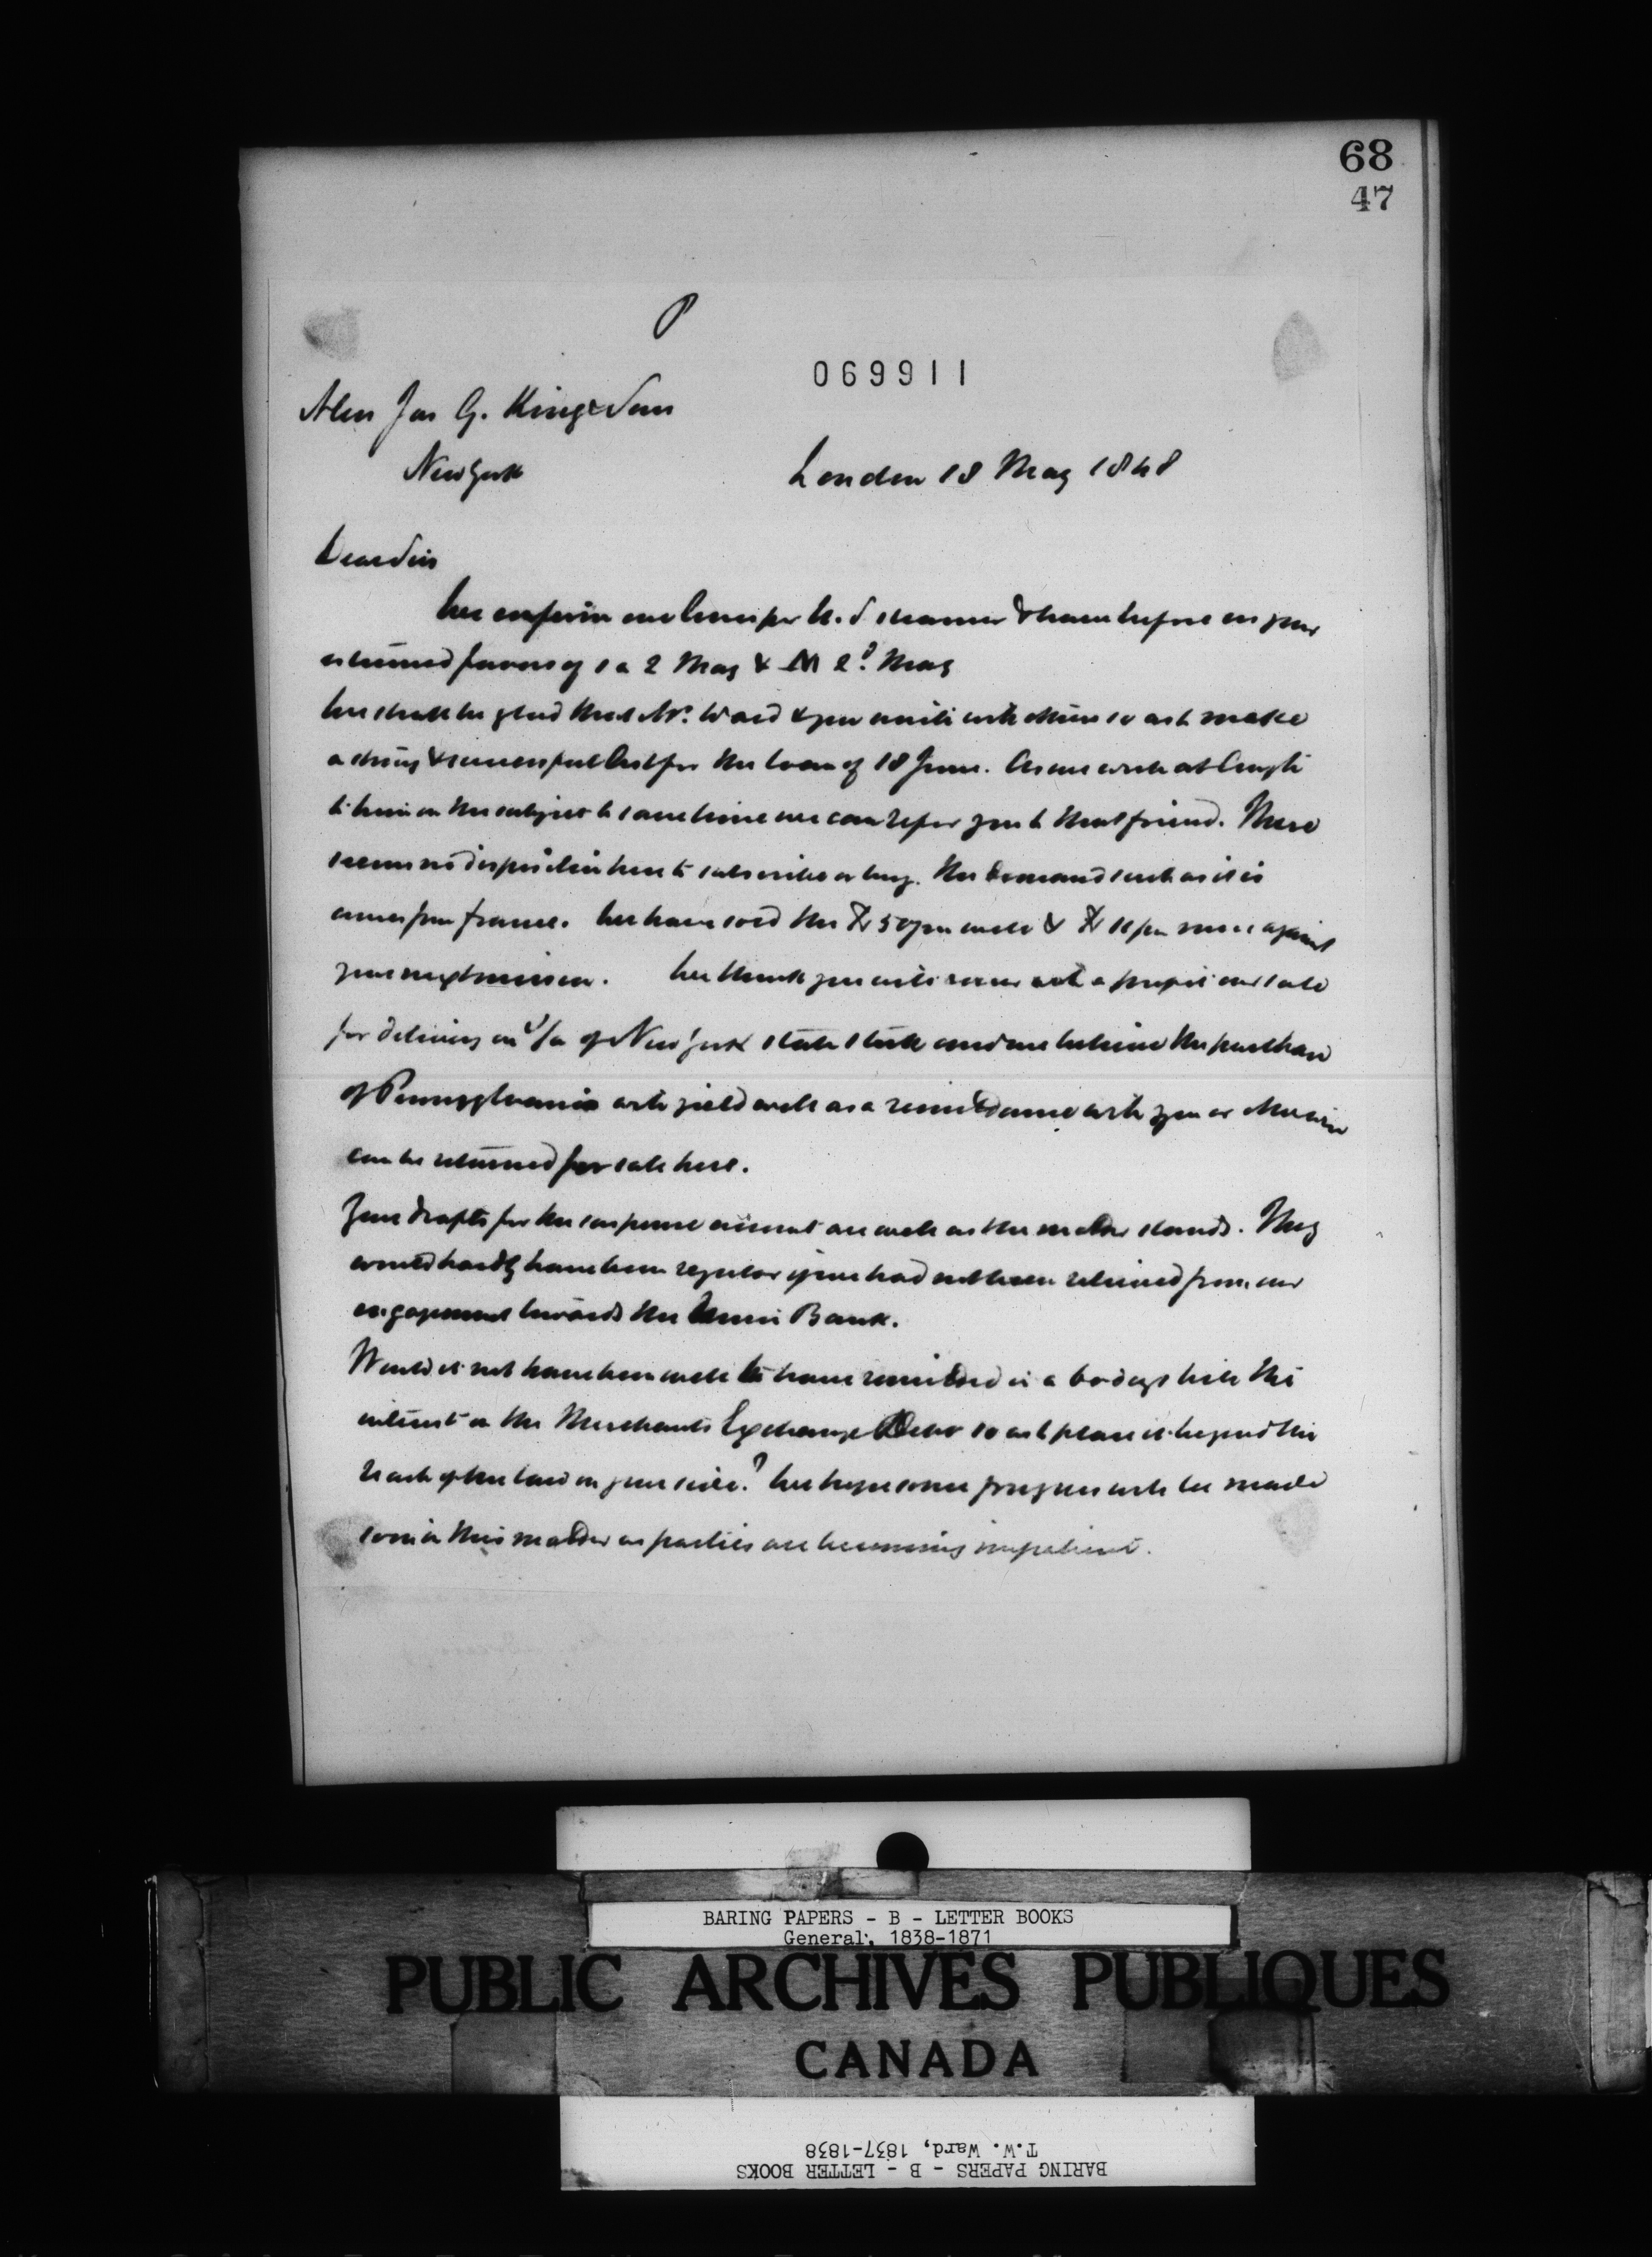 68
47
P
069911
Jas G. King & Sons
New York
London 18 May 1848
Dear Sirs
We confirm our lines per U.S. steamer & have before us your
esteemed favors of 1 & 2 May & 2d. May
We shall be glad that Mr. Ward & you unite with others so as to make
a strong & successful list for the loan of 18 June. As we write at length
to him on the subject to same time we can refer you to that friend. There
seems no disposition here to subscribe or buy. The demand such as it is
comes from France. We have sold the 50 & more against
your. We think you will with a profit our sale
for delivery on a/c of New York State Stock and we believe the purchase
of Pennsylvania will yield well as a remittance with you or otherwise
can be returned for sale here.
Your drafts for the suspense account are well as the matter stands. They
would hardly have been regular if you had not been relieved from our
engagement towards the Bank.
Would it not have been well to have remitted in a 60 days bill the
interest on the Merchants Exchange Debt so as to place it beyond the
reach of the law on your side? We hope some progress will be made
soon in this matter as parties are becoming impatient.
BARING PAPERS - B - LETTER BOOKS
General, 1838-1871
PUBLIC ARCHIVES PUBLIQUES
CANADA
BARING PAPERS - B - LETTER BOOKS
T.W. Ward, 1837-1838